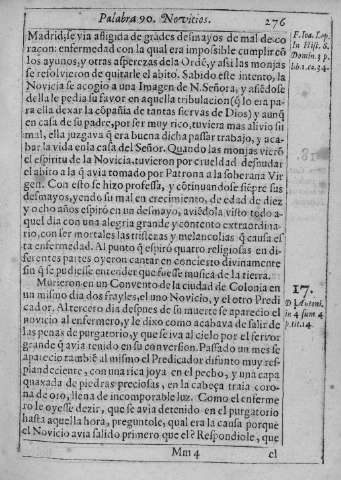 Palabra 90. Novicios. 276
Madrid, se via afligida de grãdes desmayos de mal de co
raçon: enfermedad con la qual era impossible cumplir cõ
los ayunos, y otras asperezas de la Ordẽ, y assi las monjas
se resolvieron de quitarle el abito. Sabido este intento, la
Novicia se acogio a una Imagen de N. Señora, y asiẽdose
della le pedia su favor en aquella tribulacion (q̃ lo era pa-
ra ella dexar la cõpañia de tantas siervas de Dios) y aunq̃
en casa de su padre, por ser muy rico, tuviera mas alivio su
mal, ella juzgava q̃ era buena dicha passar trabajo, y aca-
bar la vida en la casa del Señor. Quando las monjas vierõ
el espiritu de la Novicia, tuvieron por crueldad desnudar
el abito a la q̃ avia tomado por Patrona a la soberana Vir
gen. Con esto se hizo professa, y cõtinuandose siẽpre sus
desmayos, yendo su mal en crecimiento, de edad de diez
y ocho años espirò en un desmayo, aviẽdola visto todo a-
quel dia con una alegria grande y contento extraordina-
rio, con ser mortales las tristezas y melancolias q̃ causa es
ta enfermedad. Al punto q̃ espirò quatro religiosas en di-
ferentes partes oyeron cantar en concierto divinamente
sin q̃ se pudiesse entender que fuesse musica de la tierra.
Murieron en un Convento de la ciudad de Colonia en
un mismo dia dos frayles, el uno Novicio, y el otro Predi
cador. Al tercero dia despues de su muerte se aparecio el
novicio al enfermero, y le dixo como acabava de salir de
las penas de purgatorio, y que se iva al cielo por el fervor
grande q̃ avia tenido en su conversion. Passado un mes se
aparecio tambiẽ al mismo el Predicador difunto muy res-
plandeciente, con una rica joya en el pecho, y una capa
quaxada de piedras preciosas, en la cabeça traia coro-
na de oro, llena de incomporable luz. Como el enferme
ro le oyesse dezir, que se avia detenido en el purgatorio
hasta aquella hora, preguntole, qual era la causa porque
el Novicio avia salido primero que el? Respondiole, que
Mm 4 el
F. Ioa. Lop.
in Hist. S.
Domin. 3 p.
lib. 1. ca. 34.
17.
D. Antoni.
in 4 sum 4
p. tit. 14.